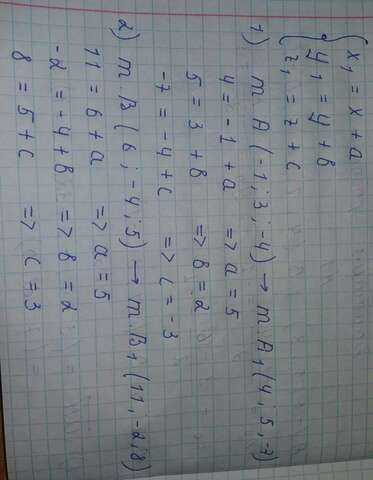 { x₁ = x + a
y₁ = y + в
z₁ = z + c
1) т А (-1; 3; -4) → т. А₁ (4; 5; -7)
4 = -1 + a => a = 5
5 = 3 + в => в = 2
-7 = -4 + c => c = -3
2) т В (6; -4; 5) → т. В₁ (11, -2; 8)
11 = 6 + a => a = 5
-2 = -4 + в => в = 2
8 = 5 + c => c = 3